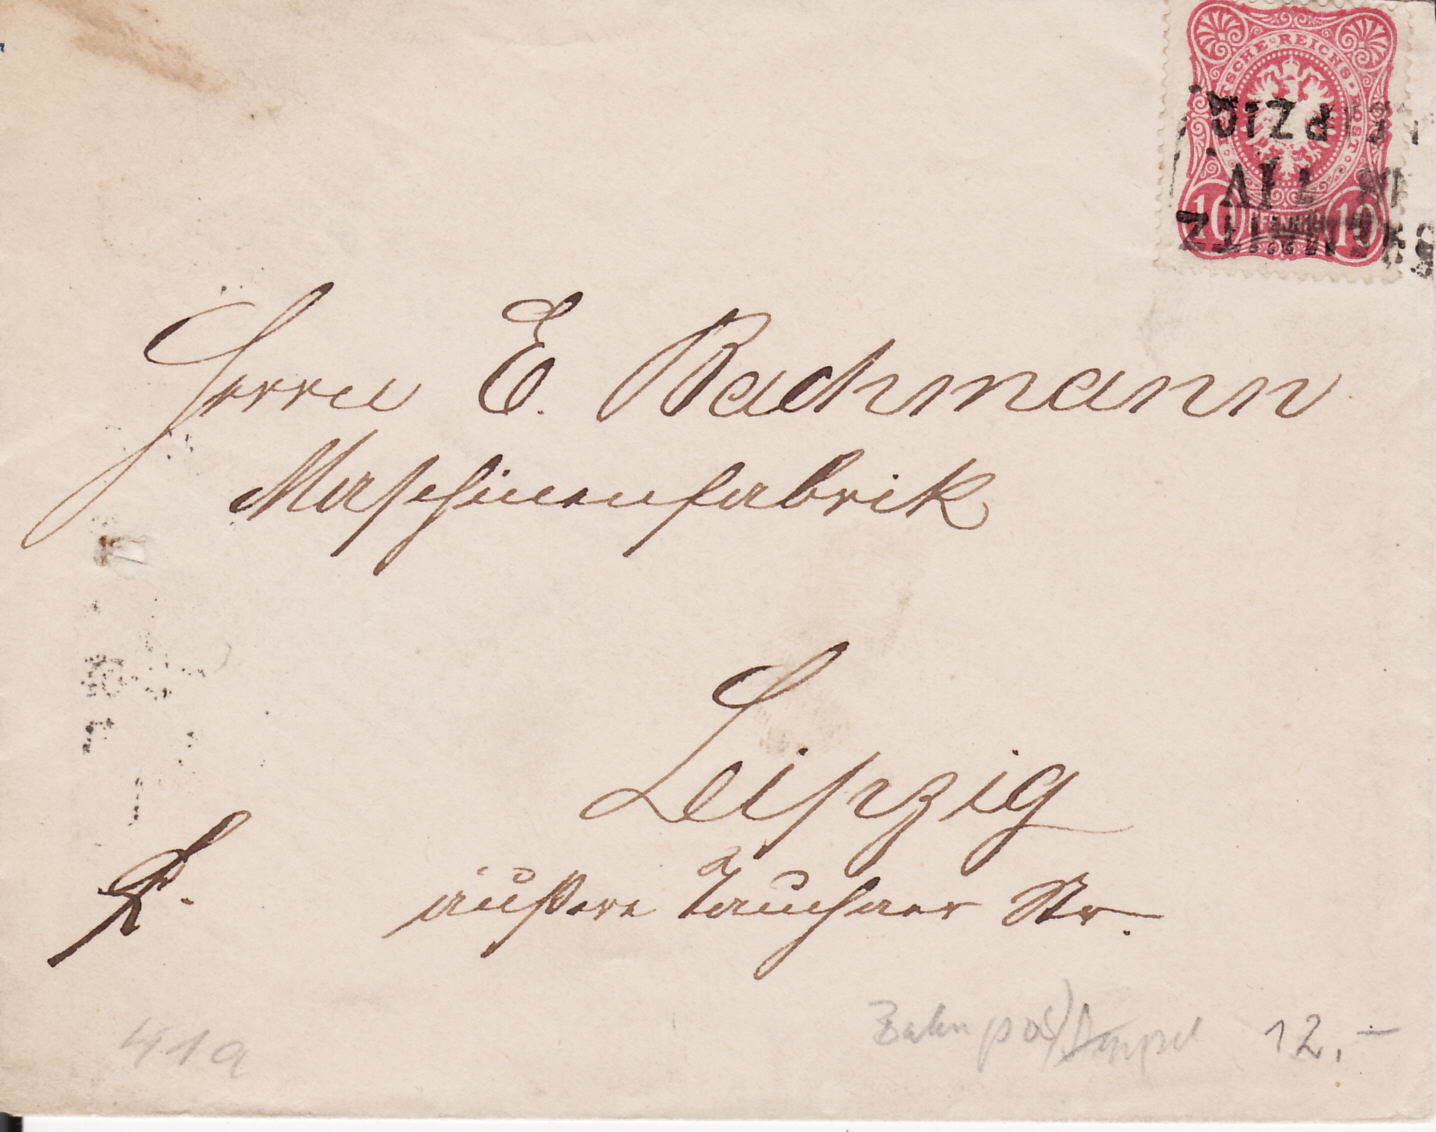 DEUTSCHE REICHS-POST
10 PFENNIG 10
LEIPZIG
IV
CHEMNITZ
Herrn E. Bachmann
Maschinenfabrik
Leipzig
äußere Tauchaer Str.
41a
Bahnpost Stempel 12.-